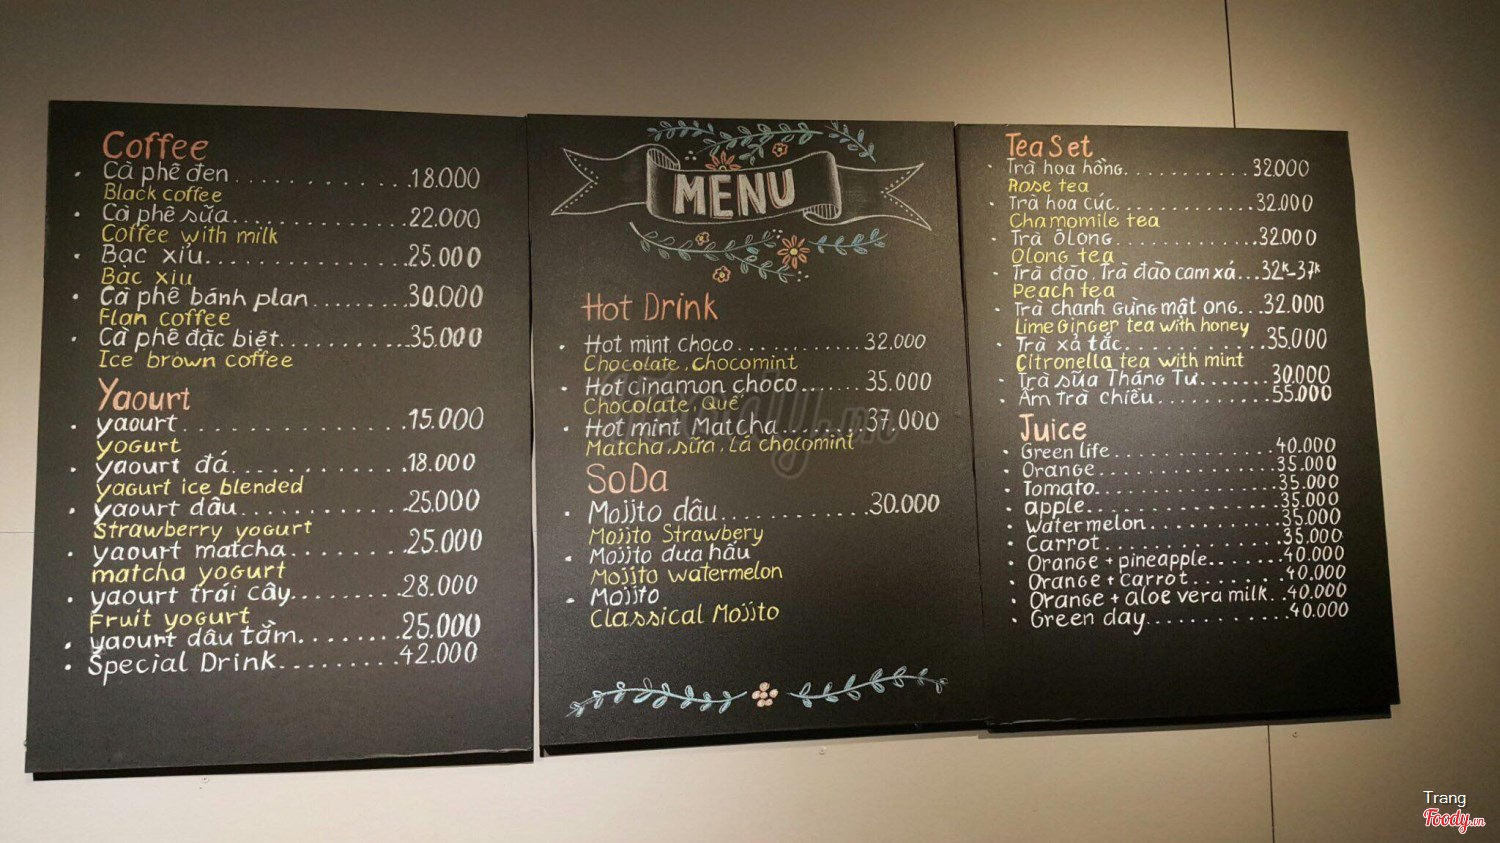 Coffee
Cà phê đen 18.000
Black coffee
Cà phê sữa 22.000
Coffee with milk
Bạc xíu 25.000
Bạc xíu
Cà phê bánh plan 30.000
Flan coffee
Cà phê đặc biệt 35.000
Ice brown coffee
Yaourt
yaourt 15.000
yogurt
yaourt đá 18.000
yagurt ice blended
yaourt dâu 25.000
Strawberry yogurt
yaourt matcha 25.000
matcha yogurt
yaourt trái cây 28.000
Fruit yogurt
yaourt dâu tằm 25.000
Special Drink 42.000
MENU
Hot Drink
Hot mint choco 32.000
Chocolate, chocomint
Hot cinamon choco 35.000
Chocolate, Quế
Hot mint Matcha 37.000
Matcha, sữa, Lá chocomint
SoDa
Mojito dâu 30.000
Mojito Strawbery
Mojito dưa hấu
Mojito watermelon
Mojito
Classical Mojito
Tea Set
Trà hoa hồng 32.000
Rose tea
Trà hoa cúc 32.000
Chamomile tea
Trà Ôlong 32.000
Olong tea
Trà đào, Trà đào cam xả 32k-37k
Peach tea
Trà chanh Gừng mật ong 32.000
Lime Ginger tea with honey
Trà xả tắc 35.000
Citronella tea with mint
Trà sữa Tháng Tư 30.000
Ấm trà chiều 55.000
Juice
Green life 40.000
Orange 35.000
Tomato 35.000
apple 35.000
Watermelon 35.000
Carrot 35.000
Orange + pineapple 40.000
Orange + carrot 40.000
Orange + aloe vera milk 40.000
Green day 40.000
Trang
Foody.vn